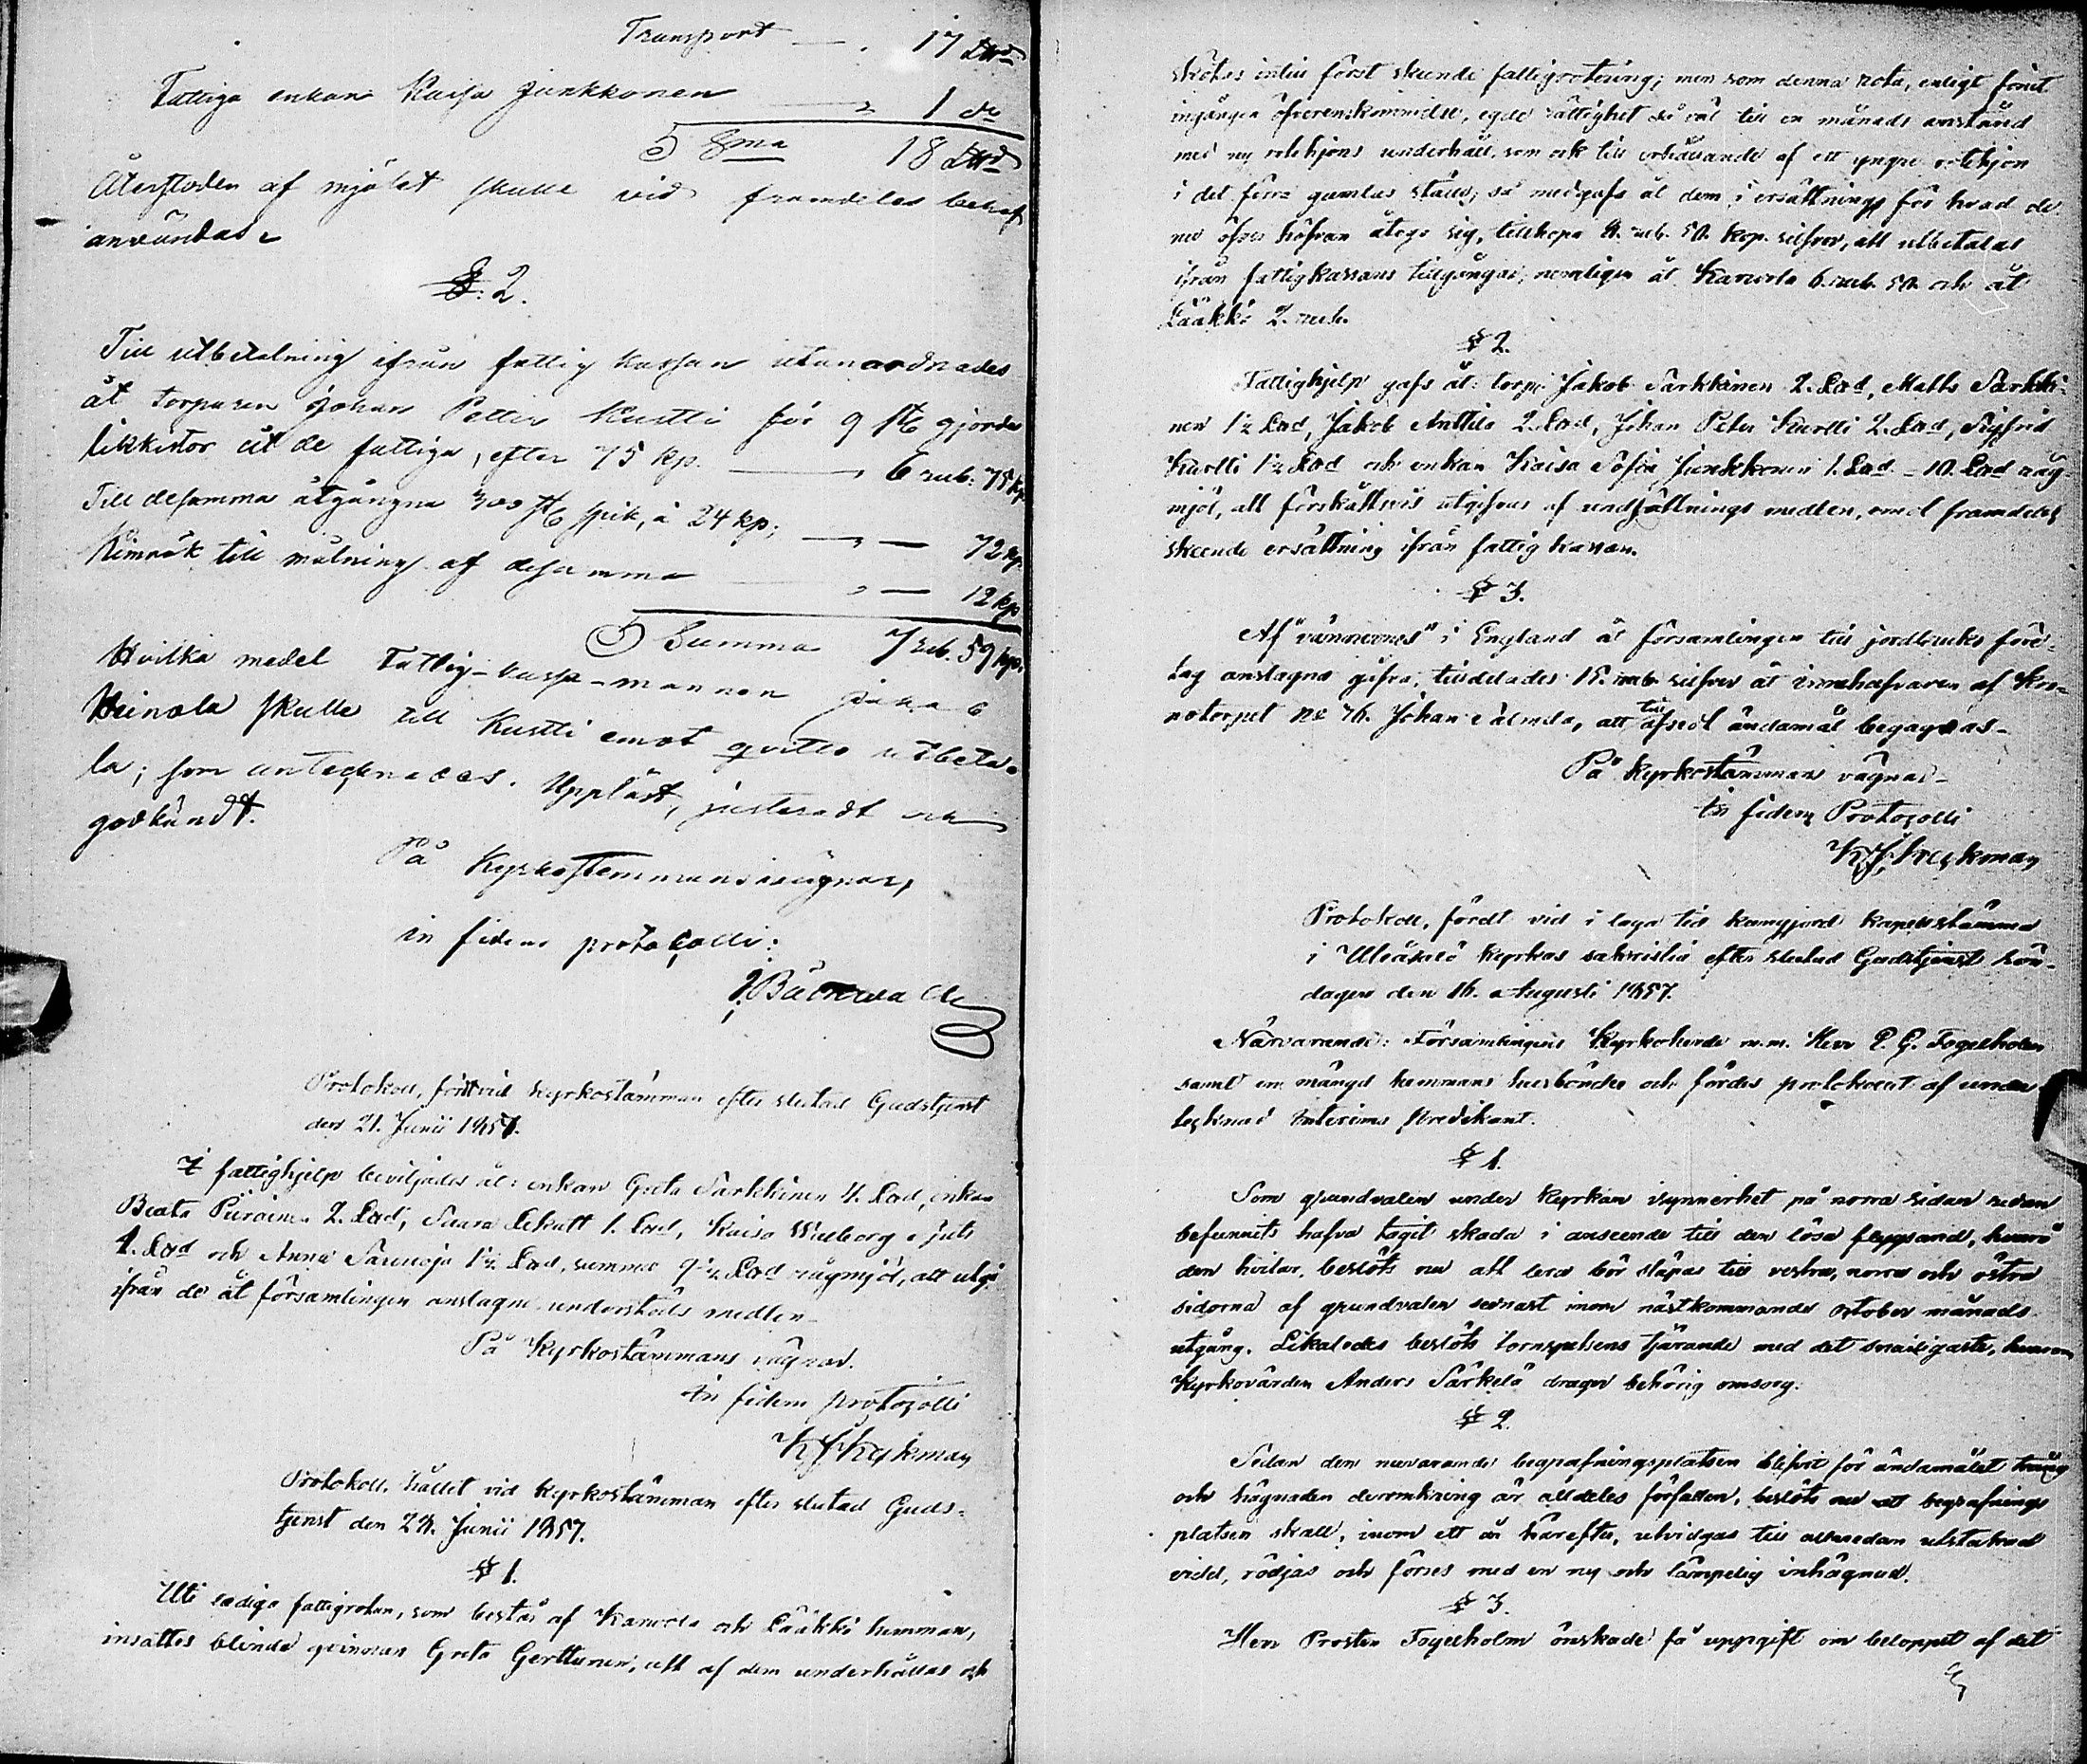 Transport — . 17 Lisd
Fattiga enkan Kaisa Junkkonen — " 1 do
S 8ma 18 Lisd
Återstoden af mjölet skulle vid framdeles behof
användas.
§. 2.
Till utbetalning ifrån fattig kassan utanordnades
åt torparen Johan Petter Kustti för 9 st gjorda
likkistor åt de fattiga, efter 75 kp. — " 6 rub. 75 kp.
Till desamma åtgångna 300 st spik, à 24 kp; — " — 72 kp.
Kimrök till målning af desamma — " — 12 kp
S Summa 7 rub. 59 kp.
Hvilka medel Fattig-kassa-mannen
Heinola skulle till Kustti emot qvitto utbeta-
la; som antecknades. Uppläst, justeradt och
godkändt.
På Kyrkostemmans vägnar,
in fidem protocolli:
Protokoll, fördt vid Kyrkostämman efter slutad Gudstjenst
den 21. Junii 1857.
I fattighjelp beviljades åt: enkan Greta Sarkkinen 4. Lisd, enkan
Beata Piirainen 2. Lisd, Saara 1. Lisd, Kaisa
1. Lisd och Anna 1½ Lisd, summa 9½ Lisd rågmjöl, att utgå
ifrån de åt församlingen anslagne understöds medlen-
På Kyrkostämmans vägnar.
in fidem protocolli
Protokoll, hållet vid Kyrkostämman efter slutad Guds-
tjenst den 28. Junii 1857.
§ 1.
Uti lediga fattigrotan, som består af Karvola och Lääkkö hemman,
insattes blinda qvinnan Greta Gerttunen, att af dem underhållas och
skötas intill först skeende fattigrotering; men som denna rota, enligt förut
ingången öfverenskommelse, egde rättighet så väl till en månads anstånd
med ny rotehjons underhåll, som ock till erhållande af ett yngre rotehjon
i det förra gamlas ställe, så medgafs åt dem i ersättning för hvad de
nu öfver höfvan åtogo sig, tillhopa 8. rub. 50. kop. silfver, att utbetalas
ifrån fattigkassans tillgångar, nemligen åt Karvola 6. rub. 50. och åt
Lääkkö 2. rub.
§ 2.
Fattighjelp gafs åt: torp: Jakob Sarkkinen 2. Lisd, Matts Sarkki-
nen 1½ Lisd, Jakob Anttila 2. Lisd, Johan Peter Kustti 2. Lisd, Sigfrid
Kustti 1½ Lisd och enkan Kaisa Sofia Junkkonen 1. Lisd - 10. Lisd råg-
mjöl, att förskottsvis utgifvas af undsättnings medlen, emot framdeles
skeende ersättning ifrån fattig kassan.
§ 3.
Af "vännernes" i England åt församlingen till jordbruks före-
tag anslagna gifva, tilldelades 15. rub. silfver åt innehafvaren af Kro-
notorpet No 76. Johan att till afsedt ändamål begagnas-
På Kyrkostämmans vägnar-
in fidem Protocolli
Protokoll, fördt vid i laga tid kungjord kapellstämma
i Uleåsalo kyrkas sakristia efter slutad Gudstjenst sön-
dagen den 16. Augusti 1857.
Närvarande: Församlingens Kyrkoherde m.m. Herr P. G. Fogelholm
samt en mängd hemmans husbönder och fördes protokollet af under-
tecknad Interims Predikant.
§ 1.
Som grundvalen under Kyrkan isynnerhet på norra sidan redan
befunnits hafva tagit skada i anseende till den lösa flygsand, hvarå
den hvilar, beslöts nu att lera bör släpas till vestra, norra och östra
sidorna af grundvalen sednast inom nästkommande October månads
utgång. Likaledes beslöts tornspetsens tjärande med det snaraste, hvarom
Kyrkovärden Anders Särkelä drager behörig omsorg.
§ 2.
Sedan den nuvarande begrafningsplatsen blifvit för ändamålet trång
och hägnaden deromkring är alldeles förfallen, beslöts nu att begrafnings
platsen skall, inom ett år härefter, utvidgas till allaredan utstakad
vidd, rödjas och förses med en ny och lämpelig inhägnad.
§ 3.
Herr Prosten Fogelholm önskade få uppgift om beloppet af det